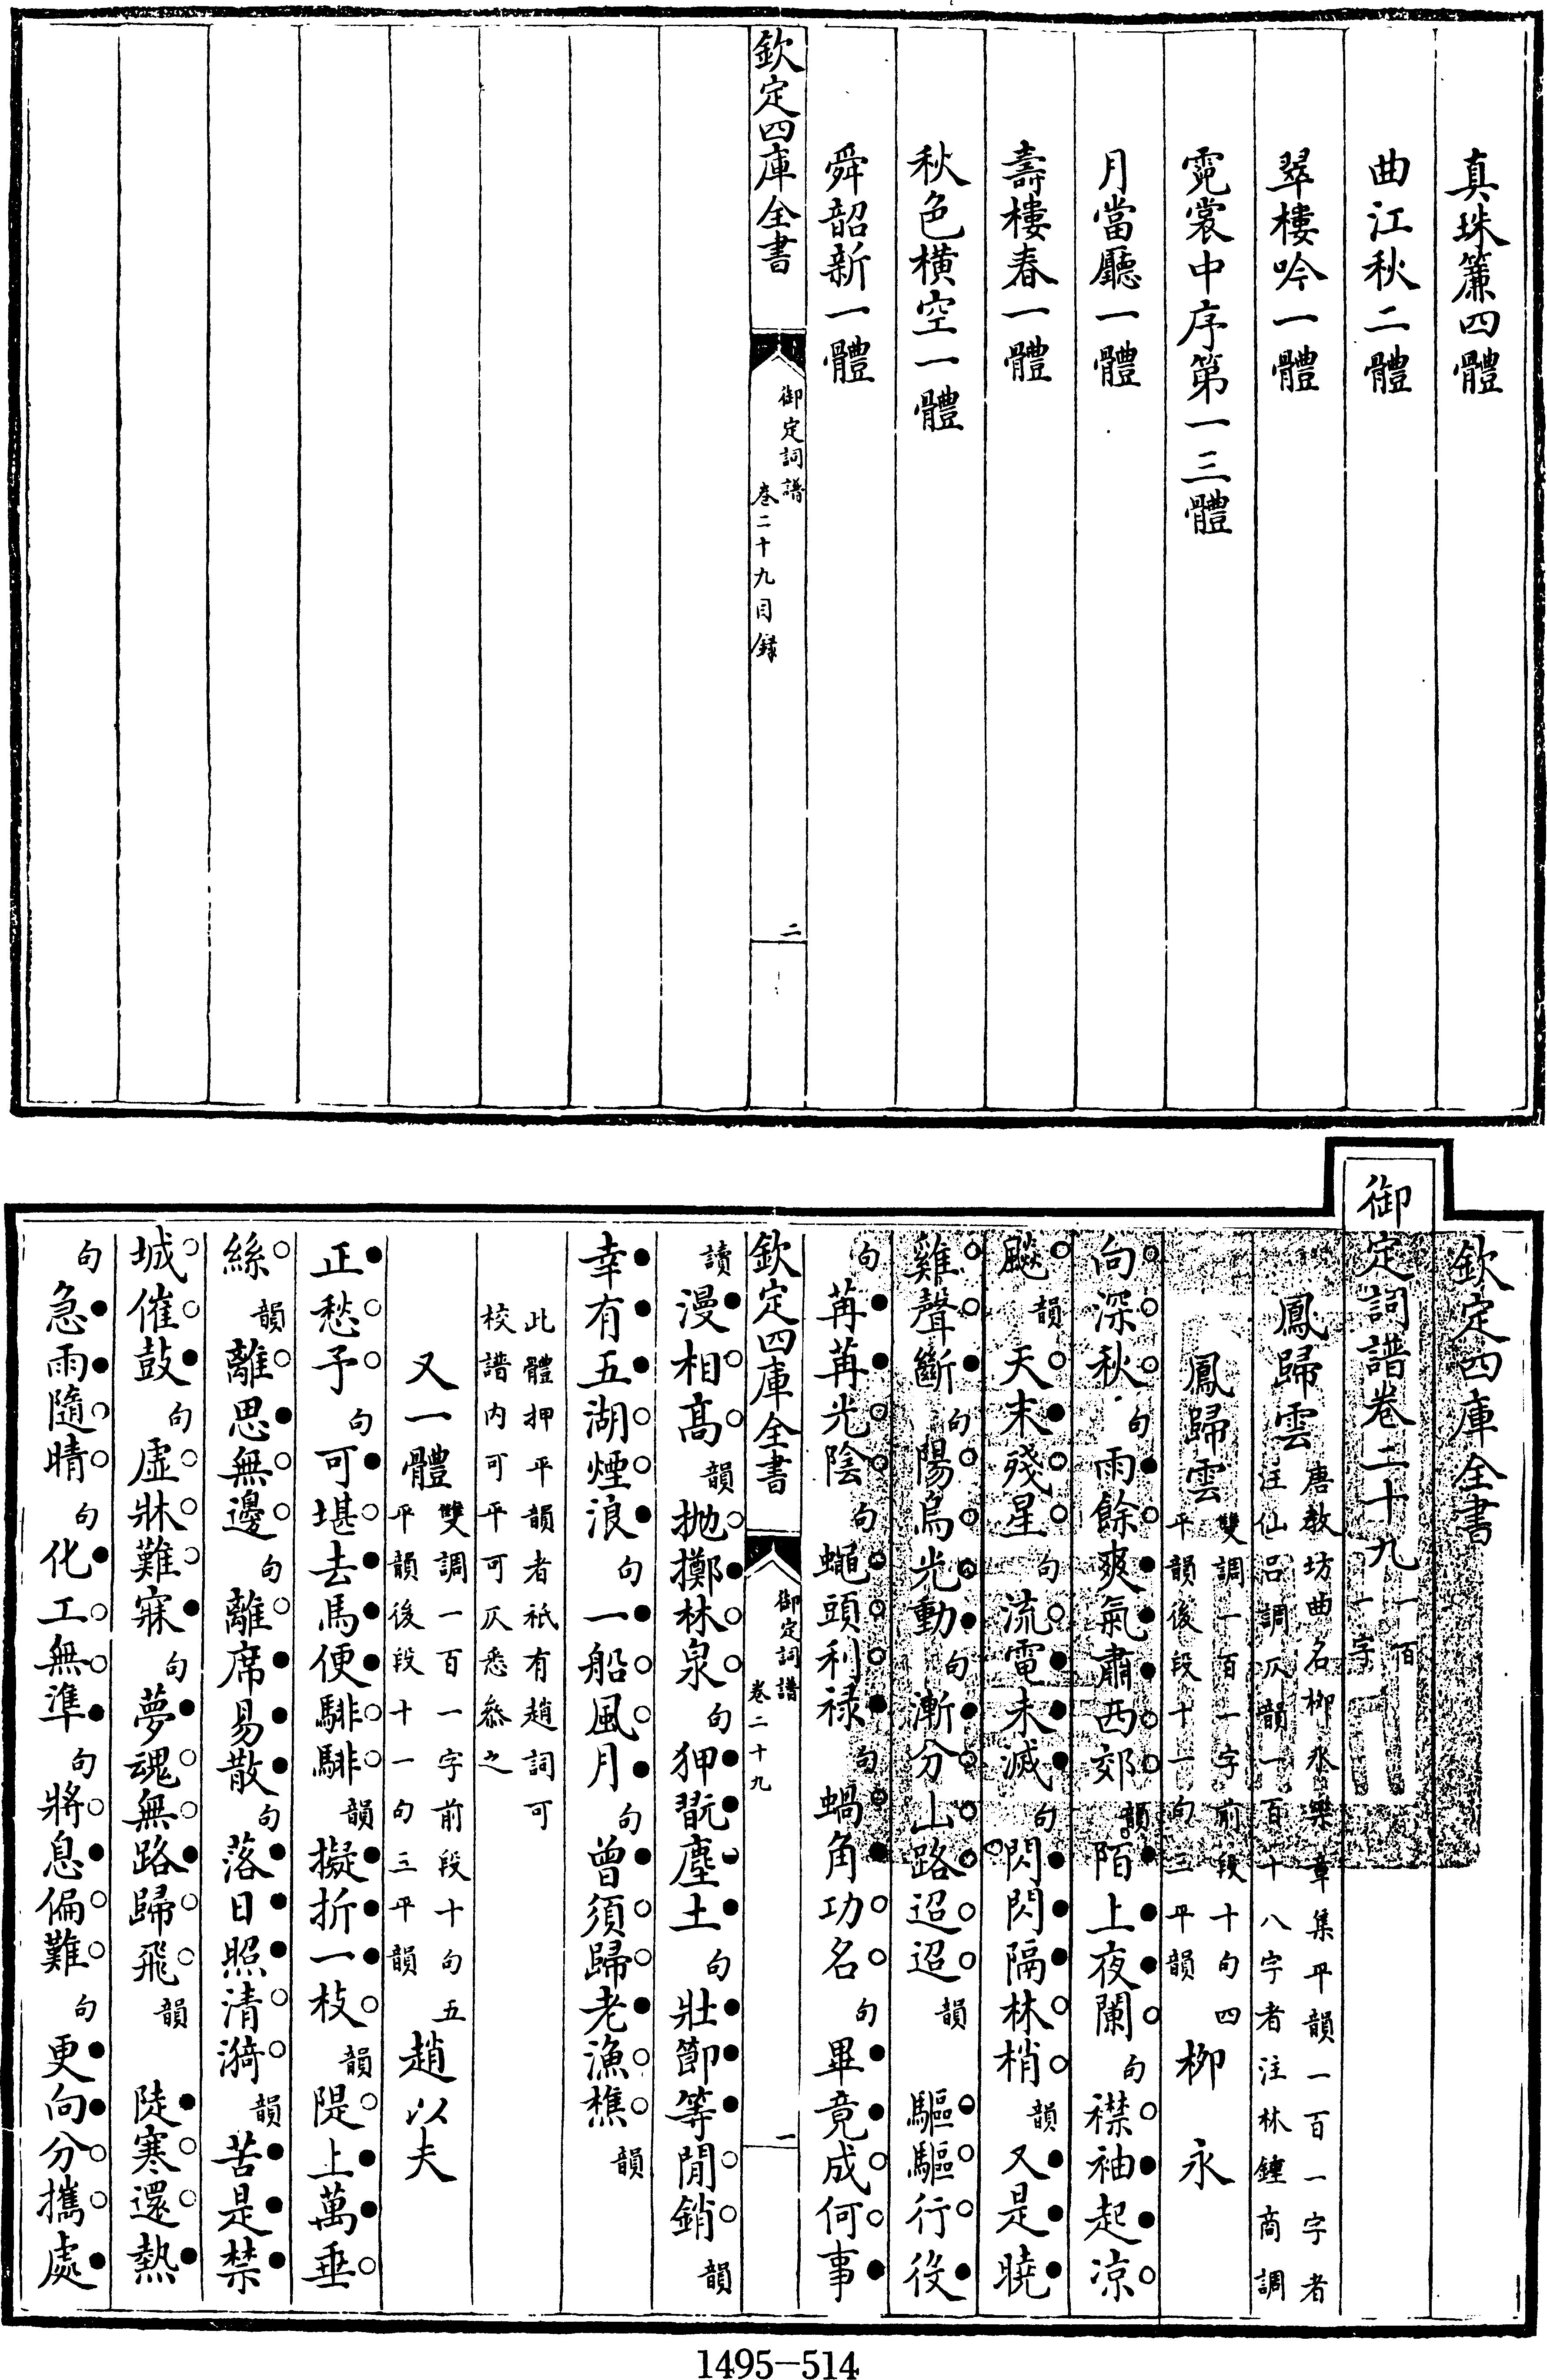 真珠簾四體
曲江秋二體
翠樓吟一體
霓裳中序第一三體
月當廳一體
壽樓春一體
秋色橫空一體
舜韶新一體
欽定四庫全書
御定詞譜
卷二十九目錄
二
欽定四庫全書
御定詞譜卷二十九
一百
一字
鳳歸雲
唐教坊曲名柳永樂章集平韻一百一字者
注仙呂調仄韻一百十八字者注林鍾商調
鳳歸雲
雙調一百一字前段十句四
平韻後段十一句三平韻
柳永
向深秋句雨餘爽氣肅西郊韻陌上夜闌句襟袖起涼
颸韻天末殘星句流電未滅句閃閃隔林梢韻又是曉
雞聲斷句陽烏光動句漸分山路迢迢韻驅驅行役
句苒苒光陰句蠅頭利祿句蝸角功名句畢竟成何事
讀漫相高韻拋擲林泉句狎翫塵土句壯節等閒銷韻
幸有五湖煙浪句一船風月句曾須歸老漁樵韻
此體押平韻者祇有趙詞可
校譜內可平可仄悉叅之
又一體
雙調一百一字前段十句五
平韻後段十一句三平韻
趙以夫
正愁予句可堪去馬便騑騑韻擬折一枝韻隄上萬垂
絲韻離思無邊句離席易散句落日照清漪韻苦是禁
城催鼓句虛牀難寐句夢魂無路歸飛韻陡寒還熱
句急雨隨晴句化工無準句將息偏難句更向分攜處
欽定四庫全書
御定詞譜
卷二十九
一
1495-514